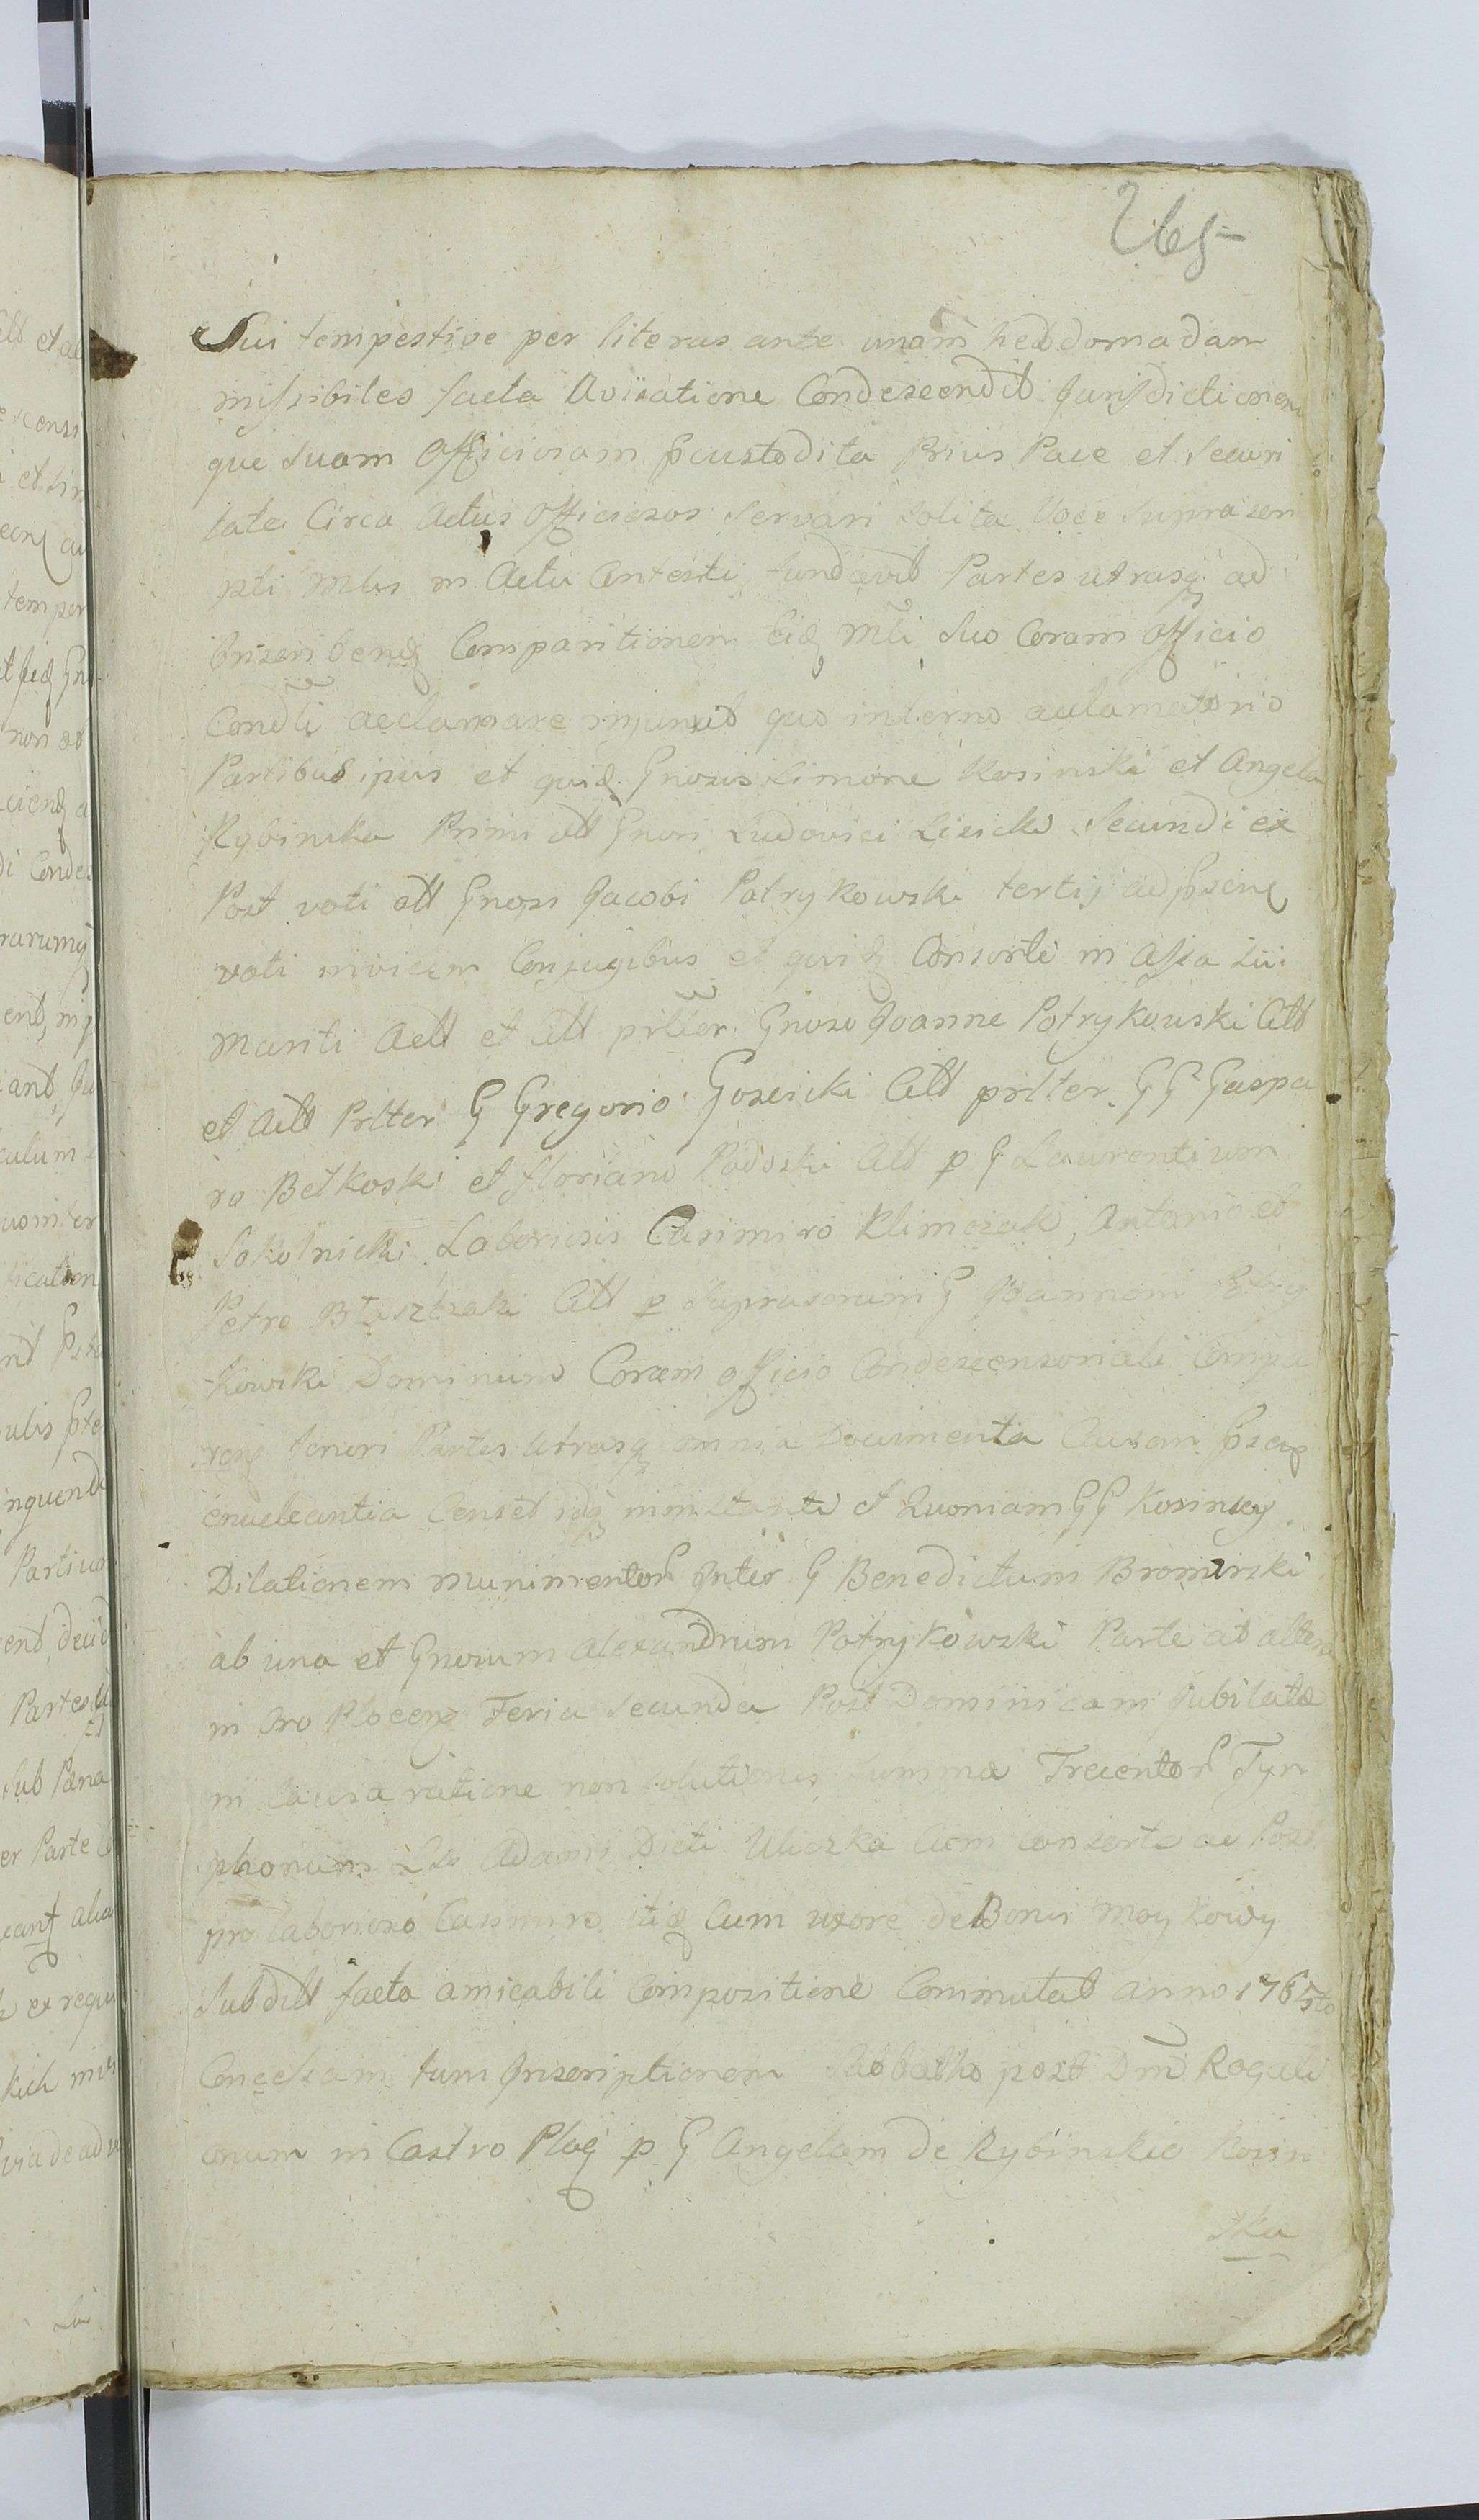 265
Sui tempestive per literas ante unam hebdomadam
missibiles facta Avisatione Condescendit Jurisdictionem
que suam Officiosam pcustodita Prius Pace et Securi
tate Circa Actus Officiosos Servari solita Voce suprascri
pti Mlis in Actu Contesti, fundavit Partes utrasq ad
Comparitionem Eid Mli Suo Coram Officio
Condli acclamare injunxit quo interno aclamatorio
Partibus ipsis et quid Gnosis Simone Kosinski et Angela
Rybinska Primi olt Gnosi Ludovici Lisicki Secundi ex
Post voti olt Gnosi Jacobi Potrykowski tertij ad psens
voti invicem Conjugibus et quid Consorte in Assa Sui
Mariti Actt et Citt prlter Gnoso Joanne Potrykowski Citt
et Actt Prlter G Gregorio Goscicki Citt prlter G G Gaspa
ro Betkoski et Floriano Padoski Citt p G Laurentium
Sokolnicki Laboriosis Casimiro Klimczak, Antonio et
Petro Błaszczak Citt p Suprascrium G Joannem Potry
kowski Dominum Coram officio Condescensoriali Compa
ren teneri Partes utrasq omnia Documenta Causam psen
enucleantia Censet idq S Quoniam G G Kosinscy
Dilationem munimentor Inter G Benedictum Bromirski
ab una et Gnosum Alexandrum Potrykowski Parte ab altera
in Tro Plocen Feria Secunda Post Dominicam Jubilate
in Causa ratione non solutionis summa Trecentor Tyn
phonum Adami Dicti Uliczka Cum consorte ac Post
pro laborioso Casimiro itid Cum uxore de Bonis Moykowy
Subditt facta amicabili Compositione Commutat anno 1765to
tum Inscriptionem Sabbatho post Dm Rogati
onum in Castro Ploc p G Angelam de Rybinskie Kosin
ska